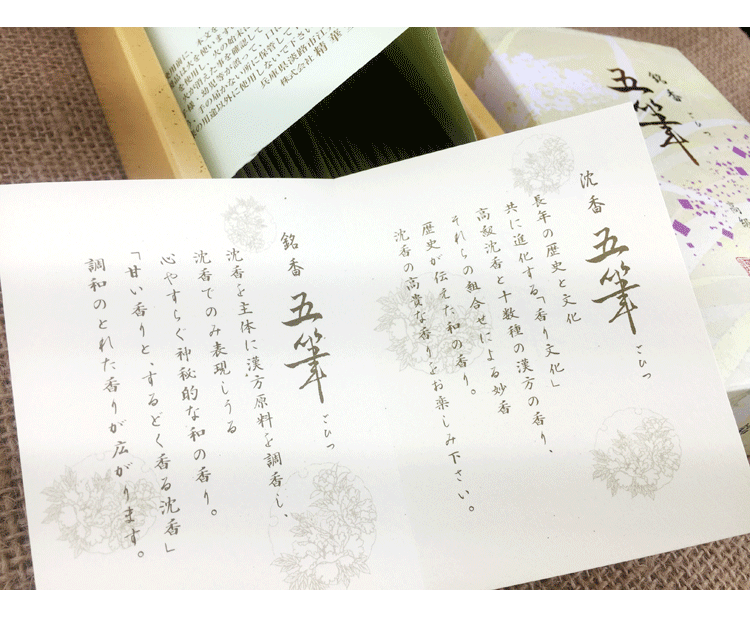 沈香
五筆
ごひつ
長年の歴史と文化
共に進化する「香り文化」
高級沈香と十数種の漢方の香り、
それらの組合せによる妙香
歴史が伝えた和の香り。
沈香の高貴な香りをお楽しみ下さい。
銘香
五筆
ごひつ
沈香を主体に漢方原料を調香し、
沈香でのみ表現しうる
心やすらぐ神秘的な和の香り。
「甘い香りと、するどく香る沈香」
調和のとれた香りが広がります。
銘香
五筆
ごひつ
の用途以外に使用しないで下さい
兵庫県淡路市江
株式会社 精華